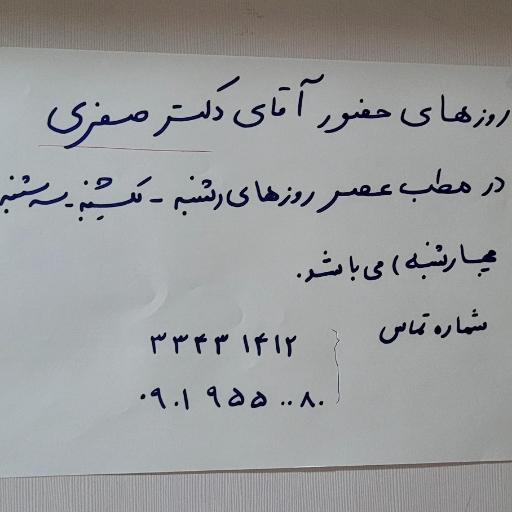 روزهای حضور آقای دکتر صفری
در مطب عصر روزهای (شنبه - یکشنبه - سه شنبه
چهارشنبه) می باشد.
شماره تماس
۳۳۴۳۱۴۱۲
۰۹۰۱۹۵۵۰۰۸۰